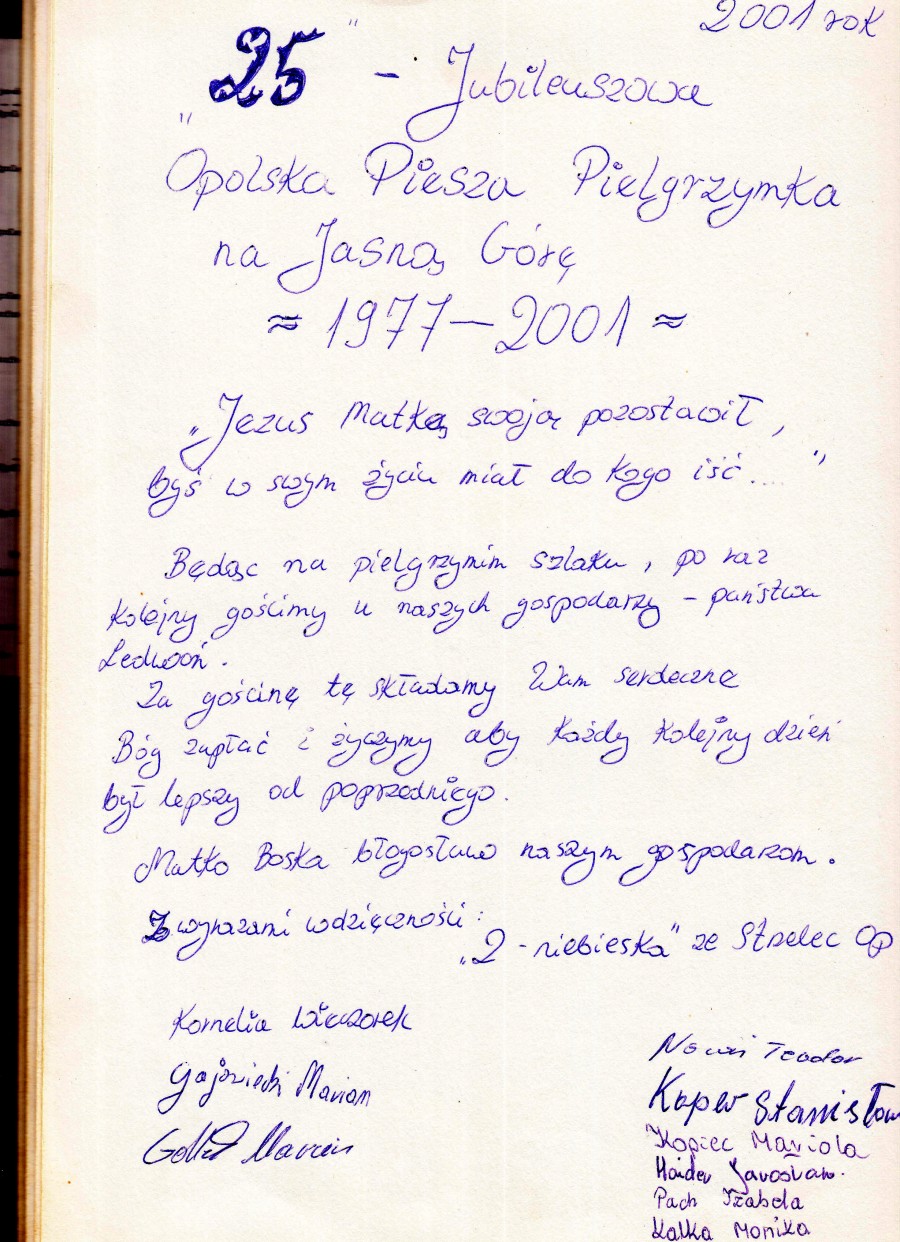 2001 rok
"25" - Jubileuszowa
Opolska Piesza Pielgrzymka
na Jasną Górę
≈ 1977 - 2001 ≈
„Jezus Matkę swoją pozostawił,
byś w swym życiu miał do kogo iść...."
Będąc na pielgrzymim szlaku, po raz
kolejny gościmy u naszych gospodarzy - państwa
Ledwoń.
Za gościnę tę składamy Wam serdeczne
Bóg zapłać i życzymy aby każdy kolejny dzień
był lepszy od poprzedniego.
Matko Boska błogosław naszym gospodarzom.
Z wyrazami wdzięczności:
„2 - niebieska" ze Strzelec Op
Kornelia Wieczorek
Marian
Marcin
Teodor
Koper Stanisław
Kopiec Mariola
Hajder Jarosław.
Pach Izabela
Kalka Monika